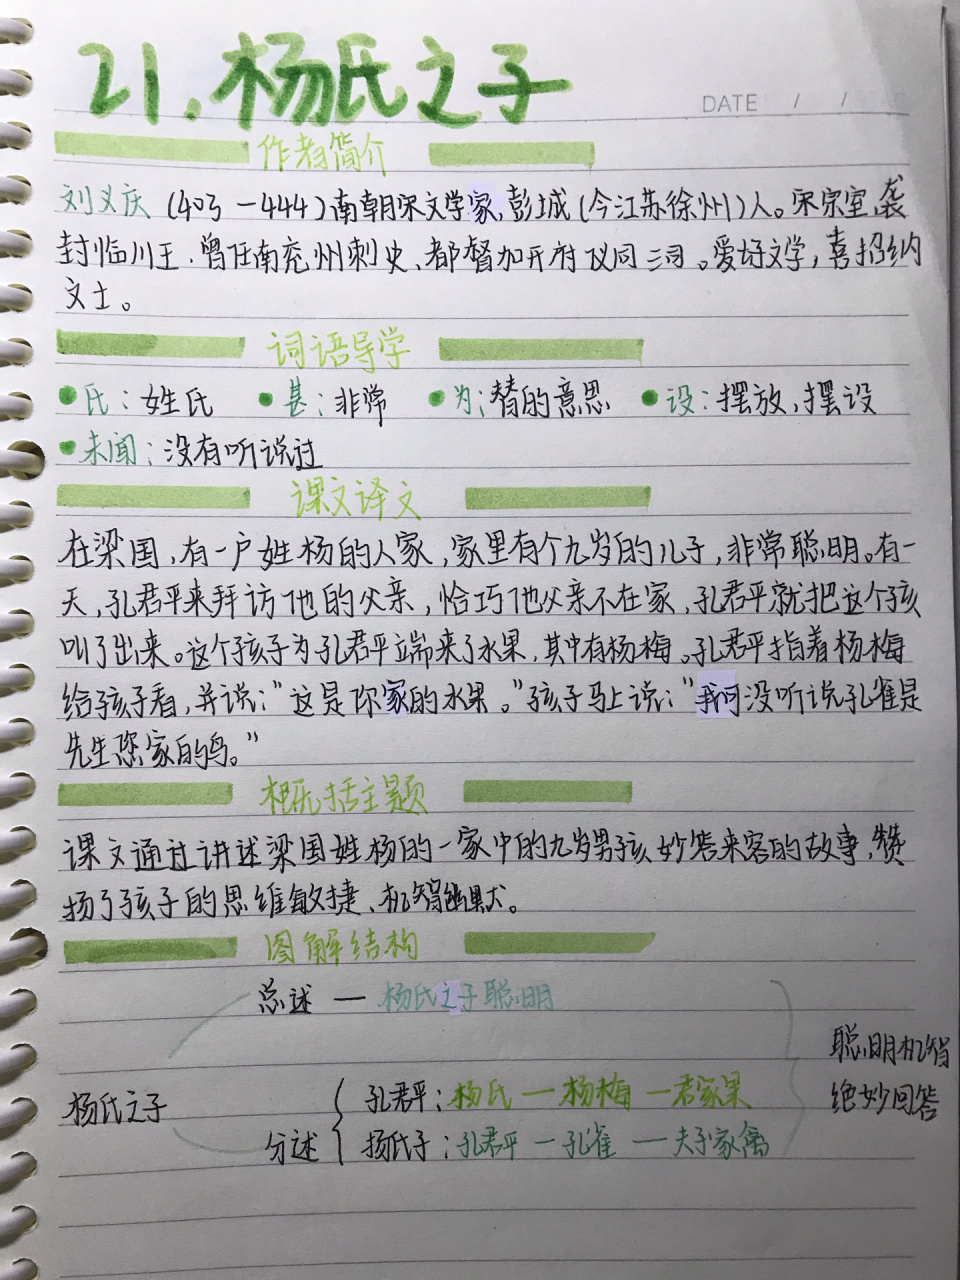 21.杨氏之子
DATE / /
作者简介
刘义庆(403-444)南朝宋文学家,彭城(今江苏徐州)人。宋宗室,袭
封临川王.曾任南兖州刺史、都督加开府仪同三司。爱好文学,喜招纳
文士。
词语导学
氏:姓氏 甚:非常 为:替的意思 设:摆放,摆设
未闻:没有听说过
课文译文
在梁国,有一户姓杨的人家,家里有个九岁的儿子,非常聪明。有一
天,孔君平来拜访他的父亲,恰巧他父亲不在家,孔君平就把这个孩
叫了出来。这个孩子为孔君平端来了水果,其中有杨梅。孔君平指着杨梅
给孩子看,并说:“这是你家的水果。”孩子马上说:“我可没听说孔雀是
先生您家的鸟。”
概括主题
课文通过讲述梁国姓杨的一家中的九岁男孩妙答来客的故事,赞
扬了孩子的思维敏捷、机智幽默。
图解结构
总述 — 杨氏之子聪明
杨氏之子
分述
孔君平:杨氏 — 杨梅 — 君家果
杨氏子:孔君平 — 孔雀 — 夫子家禽
聪明机智
绝妙回答